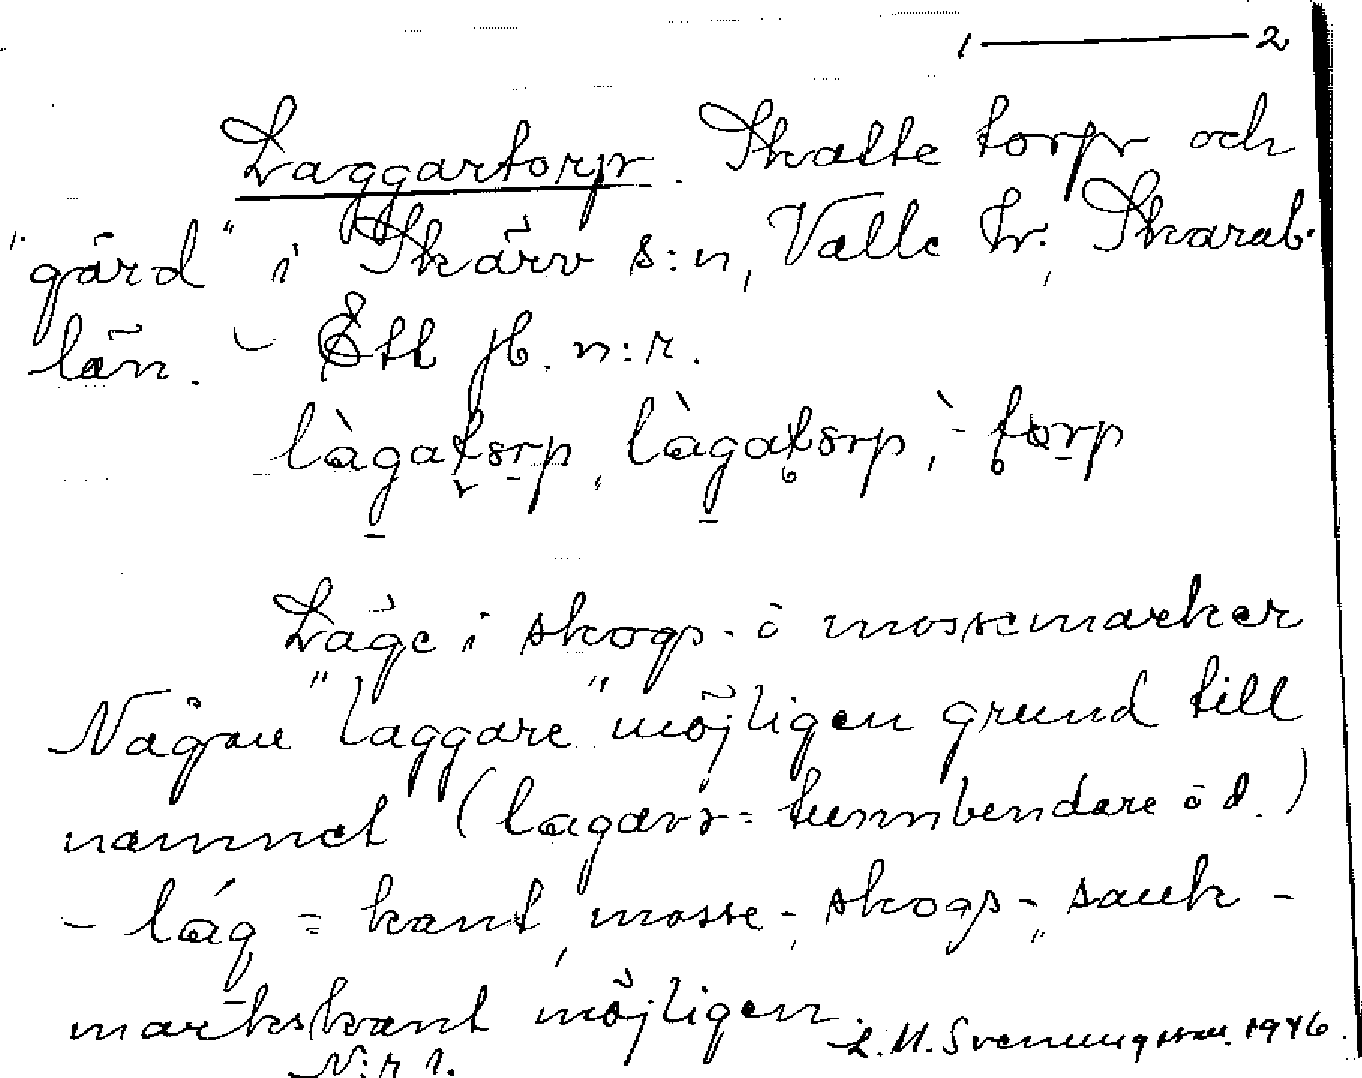 1 — 2
Laggartorp. Skatte torp och
"gård" i Skärv s:n, Valle hr, Skarab.
län. – Ett jb. n:r.
làgatorp, làgatorp, `- torp
Läge i skogs- o mossemarker
Någon "laggare" möjligen grund till
namnet (lagarə = tunnbendare o d.)
– låg = kant, mosse-, skogs-, sank-
markskant möjligen.
N:r 1.
L. M. Svenungsson 1946.